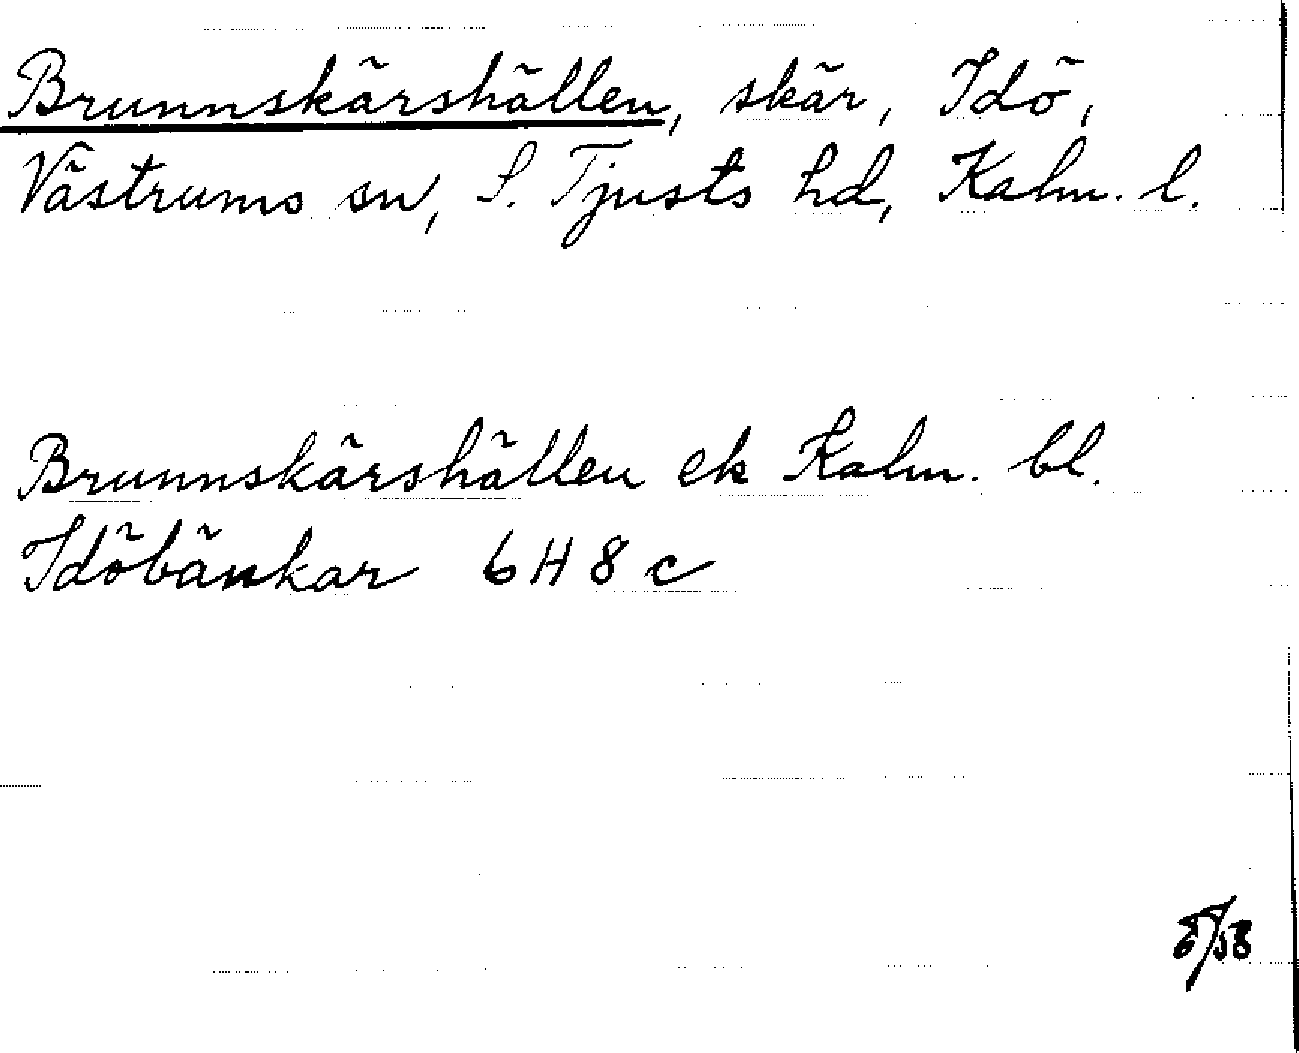 Brunnskärshällen, skär, Idö,
Västrums sn, S. Tjusts hd, Kalm. l.
Brunnskärshällen ek Kalm. bl.
Idöbänkar 6 H 8 c